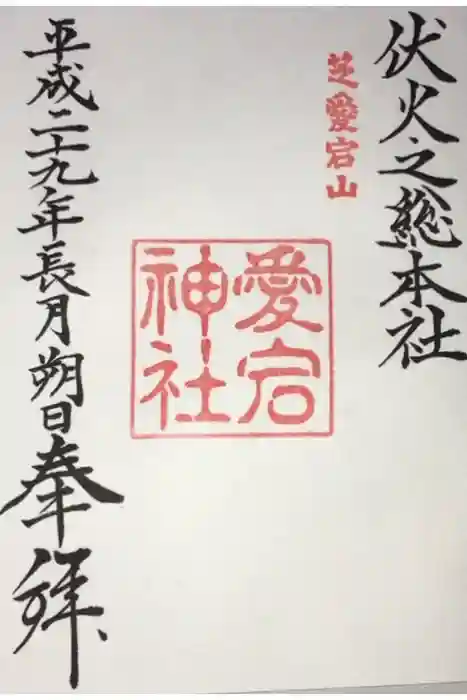 伏火之総本社
芝愛宕山
愛宕
神社
平成二十九年長月朔日奉拝